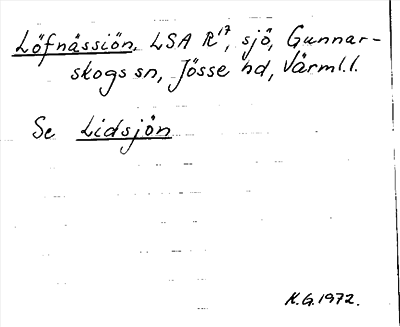 Löfnässiön, LSA R¹⁷, sjö, Gunnar-
skogs sn, Jösse hd, Värml.l.
Se Lidsjön
K.G.1972.